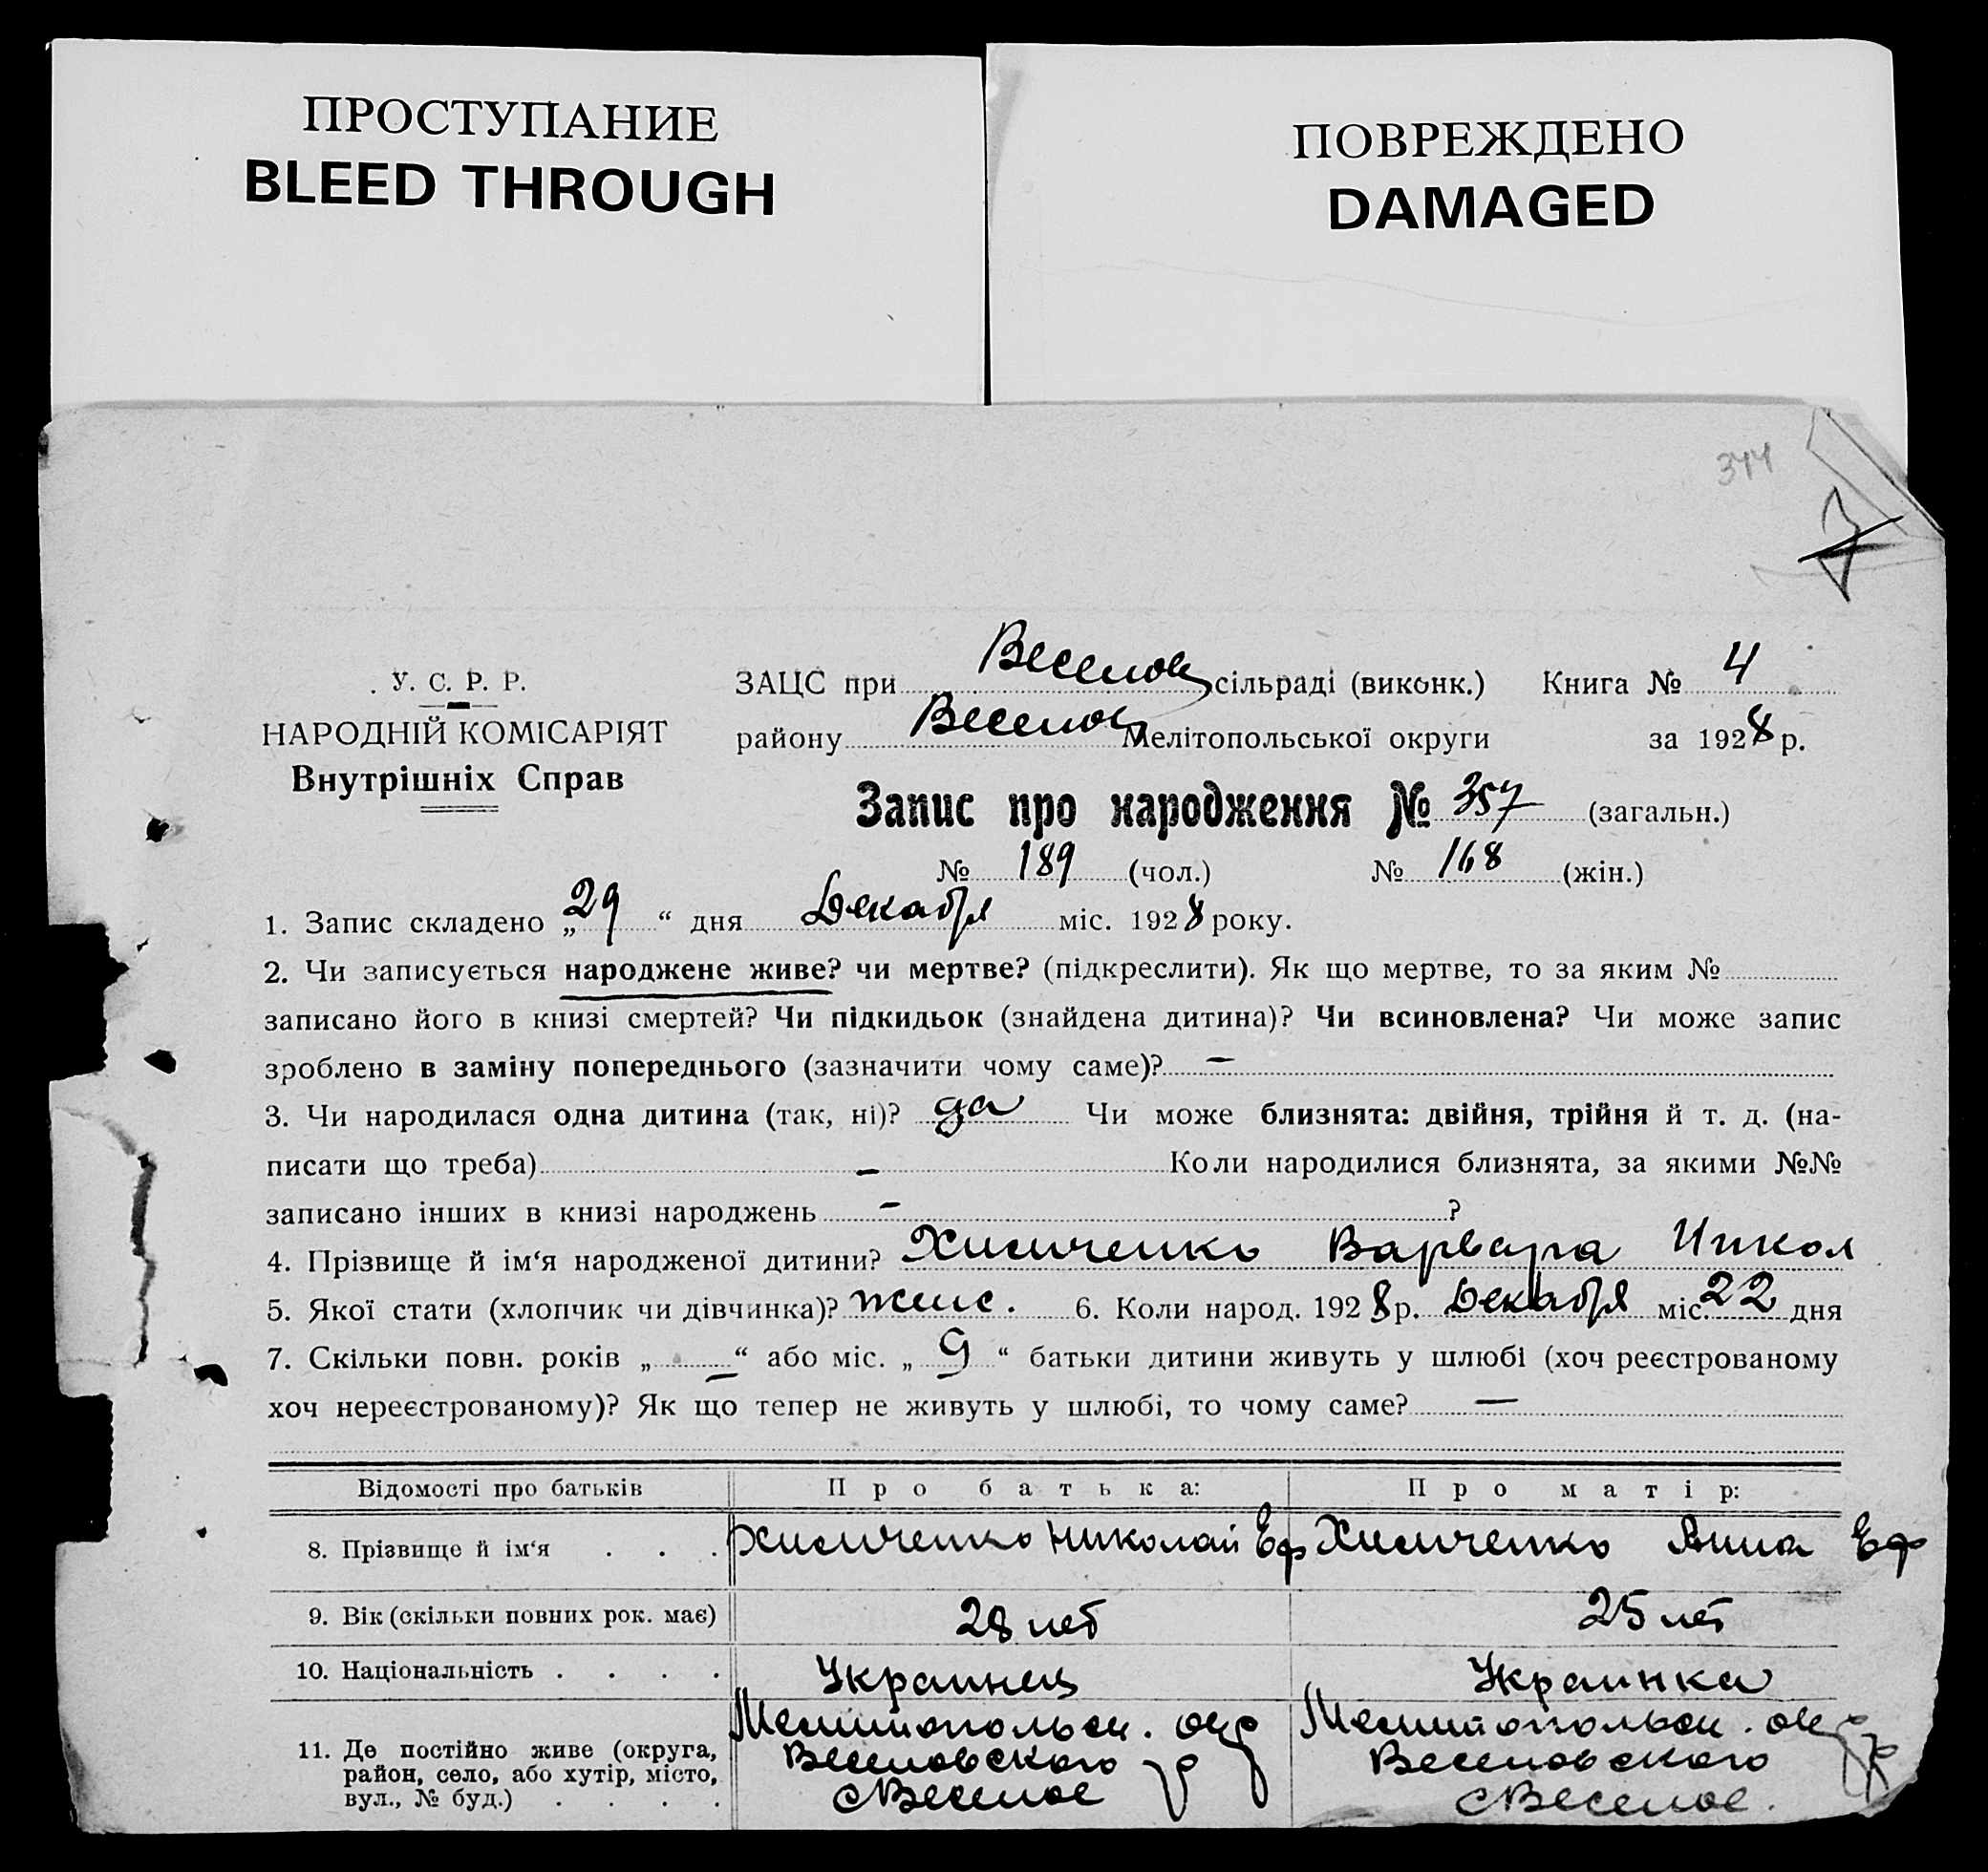 ПРОСТУПАНИЕ
BLEED THROUGH
ПОВРЕЖДЕНО
DAMAGED
344
У. С. Р. Р.
НАРОДНІЙ КОМІСАРІЯТ
Внутрішніх Справ
ЗАЦС при Веселов сільраді (виконк.) Книга № 4
району Веселов Мелітопольської округи за 1928 р.
Запис про народження № 357 (загальн.)
№ 189 (чол.) № 168 (жін.)
1. Запис складено „29“ дня Декабря міс. 1928 року.
2. Чи записується народжене живе? чи мертве? (підкреслити). Як що мертве, то за яким №
записано його в книзі смертей? Чи підкидьок (знайдена дитина)? Чи всиновлена? Чи може запис
зроблено в заміну попереднього (зазначити чому саме)? —
3. Чи народилася одна дитина (так, ні)? да Чи може близнята: двійня, трійня й т. д. (на-
писати що треба) — Коли народилися близнята, за якими №№
записано інших в книзі народжень — ?
4. Прізвище й ім‘я народженої дитини? Химченко Варвара Никол
5. Якої стати (хлопчик чи дівчинка)? женс. 6. Коли народ. 1928 р. Декабря міс. 22 дня
7. Скільки повн. років „—“ або міс. „9“ батьки дитини живуть у шлюбі (хоч реєстрованому
хоч нереєстрованому)? Як що тепер не живуть у шлюбі, то чому саме? —
Відомості про батьків Про батька: Про матір:
8. Прізвище й ім‘я . . . Химченко Николай Еф Химченко Анна Еф
9. Вік (скільки повних рок. має) 28 лет 25 лет
10. Національність . . . . Украинец Украинка
11. Де постійно живе (округа, район, село, або хутір, місто, вул., № буд.) . . . .
Мелитопольск. окр
Веселовского р
с Веселое
Мелитопольск. окр
Веселовского р
с Веселое.